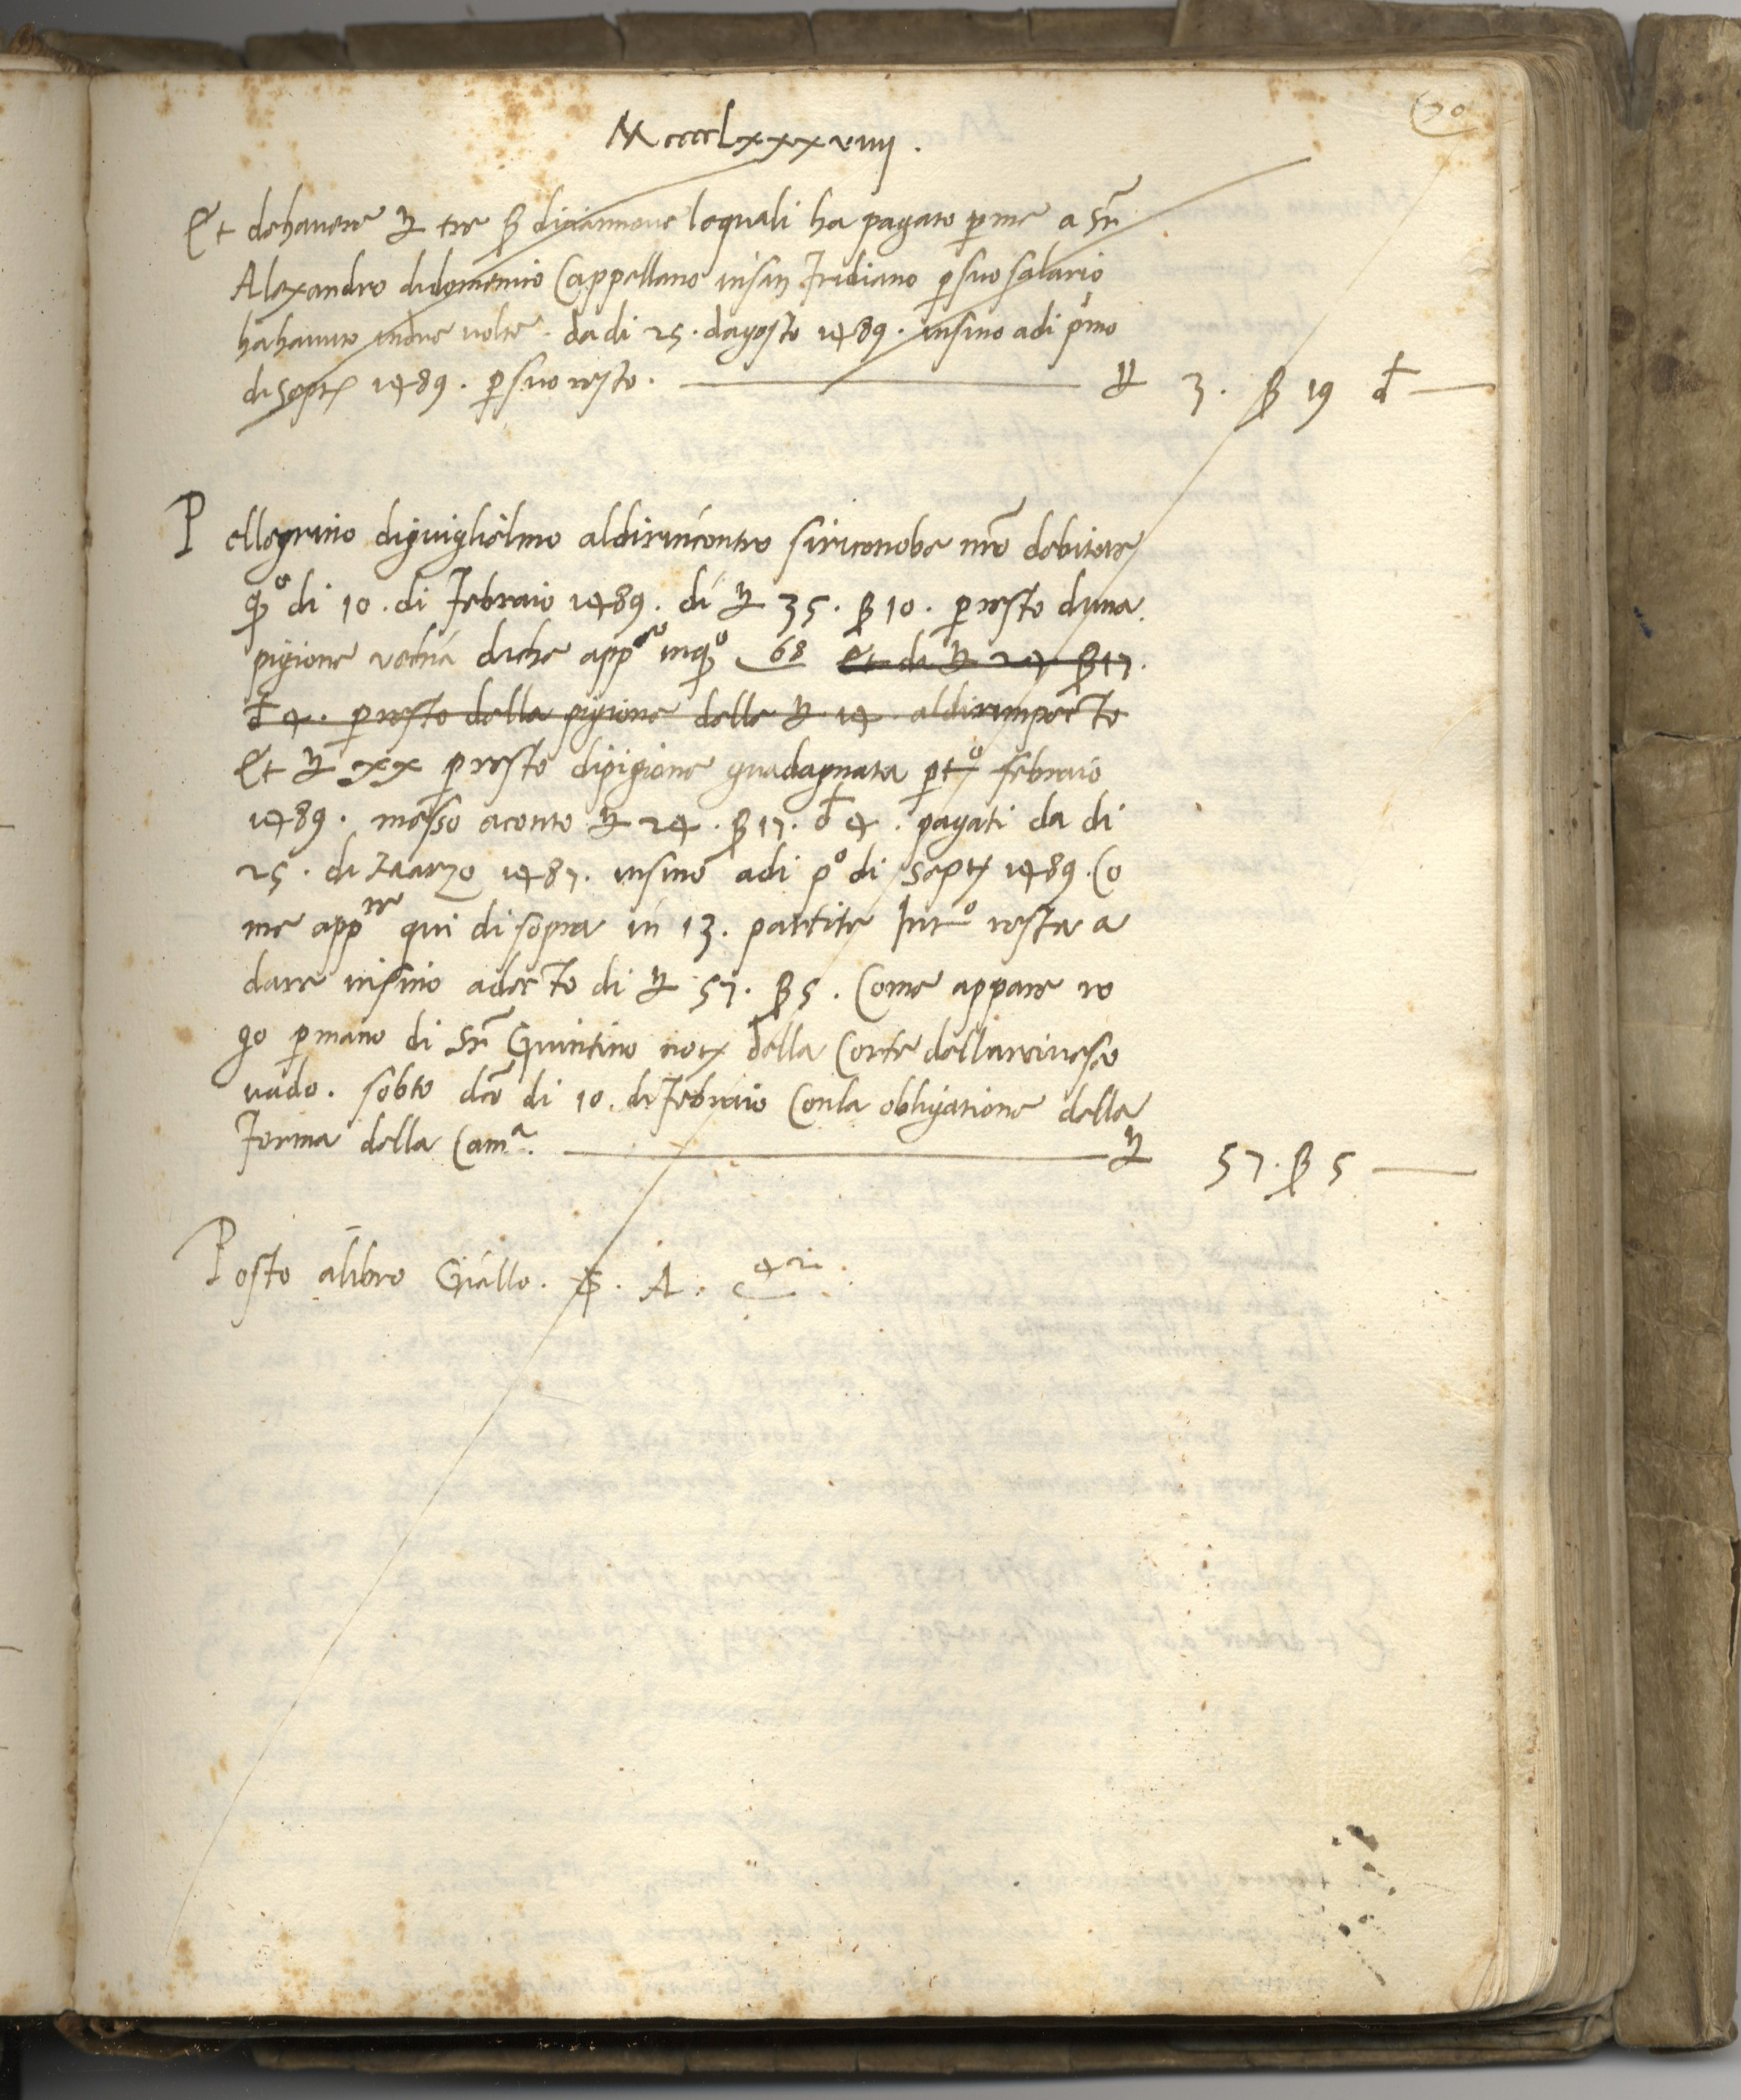 70
Mcccclxxxviiij.
Et de havere ₶ tre ß diciannove lequali ha pagato p me a Sr̄
Alexandro di domenico Cappellano in san Fridiano p suo salario
ha havuto in due volte. da di 25. dagosto 1489. insino adi pimo
di Septe 1489. p suo resto. ₶ 3. ß 19 d —
Pellegrino di guiglielmo aldirincontro si riconobe nr̄o debitore
qo di 10. di Febraio 1489. di ₶ 35. ß 10. p resto duna
pigione vechia di che appare in qo 68 et di ₶ 24 ß 17.
d 4. p resto della pigione delle ₶ 14 aldirimpecto
Et ₶ xx p resto di pigione guadagnata p tto febraio
1489. messo a conto ₶ 24. ß 17. d 4. pagati da di
25. di Marzo 1487. insino adi po di Septe 1489. Co
me appre qui di sopra in 13. partite Intto resta a
dare insino adecto di ₶ 57. ß 5. Come appare ro
go p mano di Sr̄ Quintino not della Corte dellarcivesco
vado. sobto dco di 10. di Febraio Conla obligatione della
Forma della Cama. ₶ 57. ß 5 —
Posto alibro Giallo. S. A. 42.